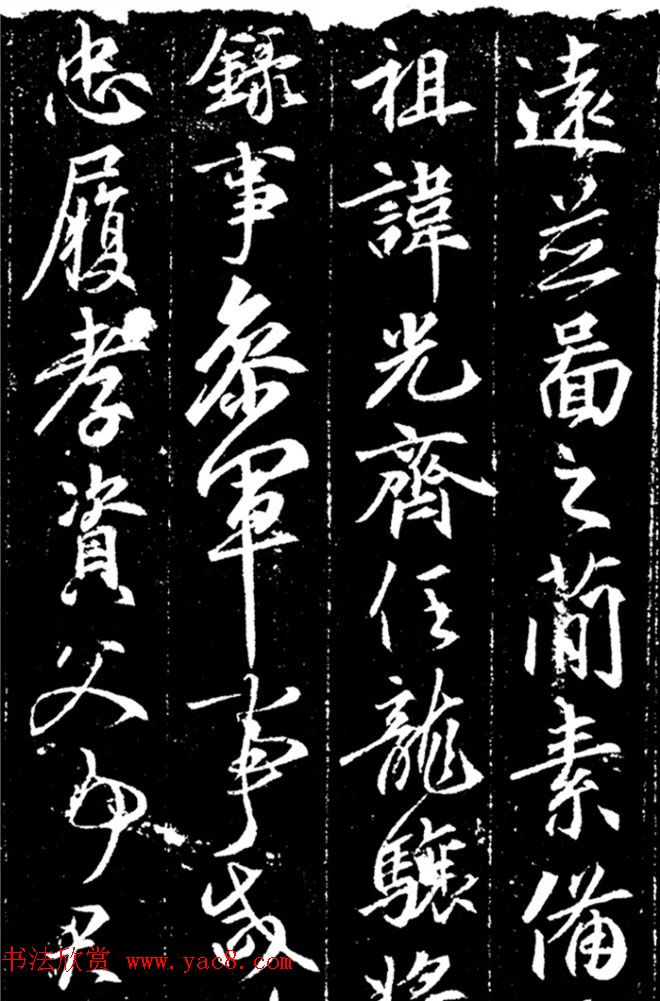 遠並圖之蕳素備
祖諱光齊任龍驤將
錄事叅軍事咸
忠履孝資父事君
书法欣赏 www.yac8.com